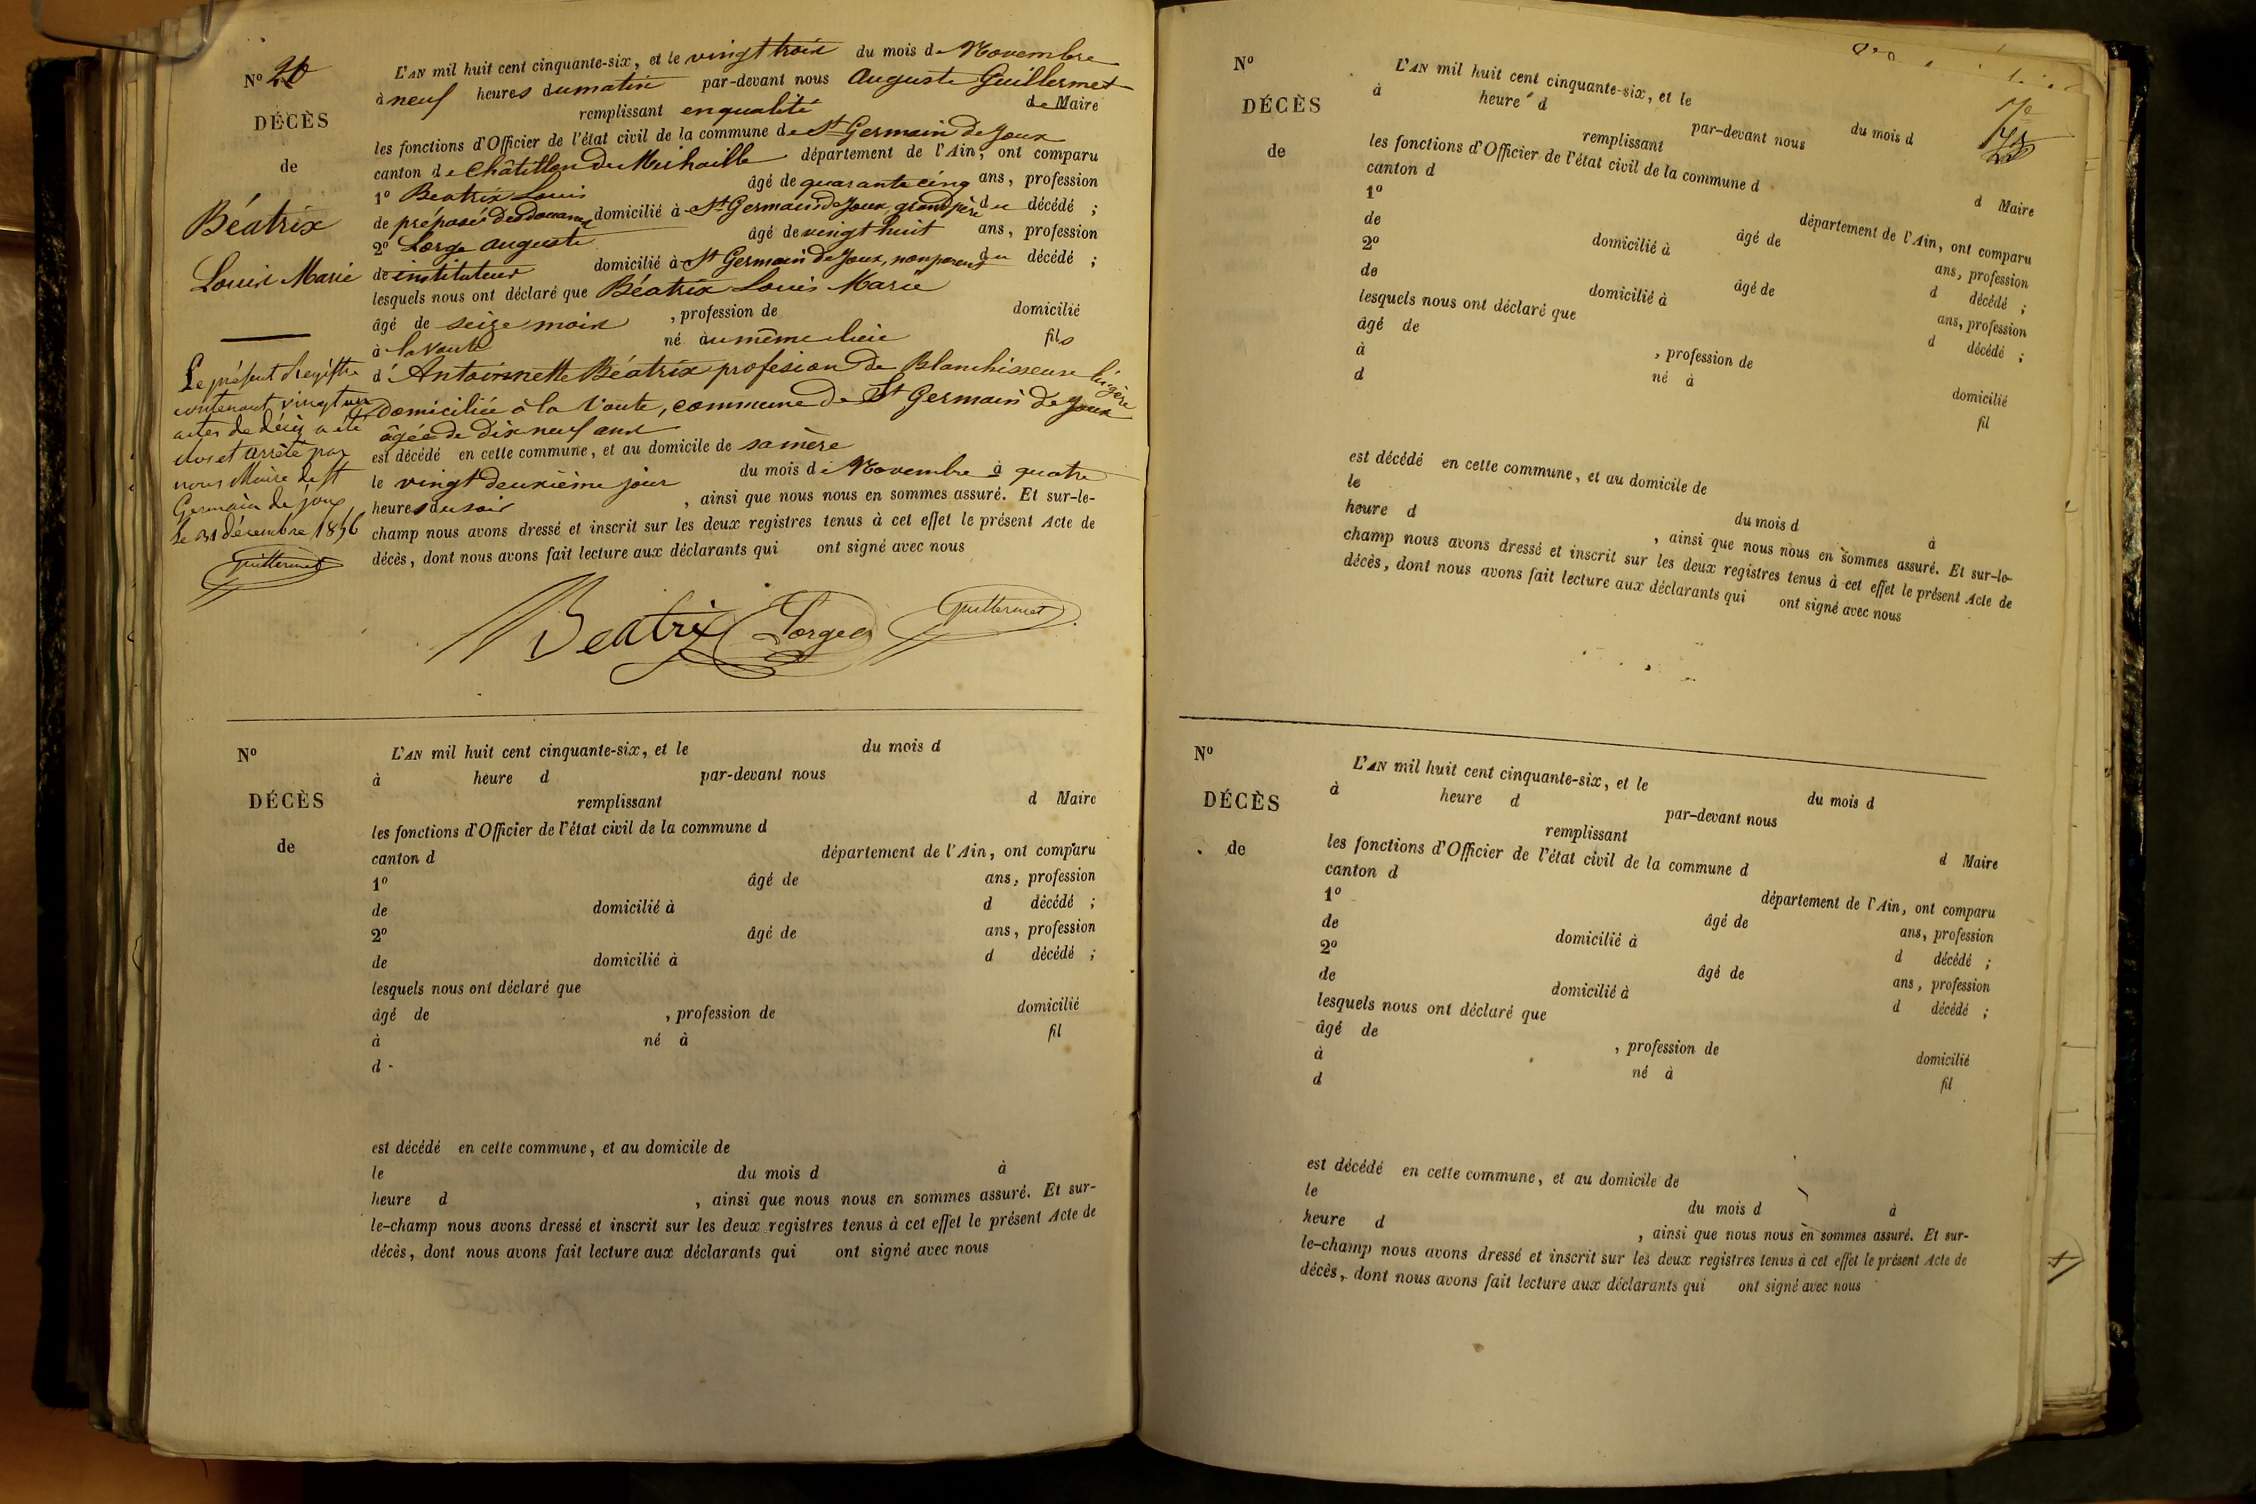 Nº
DÉCÈS
de
Béatrix
Louis Marie
L'AN mil huit cent cinquante-six, et le vingt trois du mois de Novembre
à neuf heures du matin par-devant nous Auguste Guillermet
remplissant en qualité de Maire
les fonctions d'Officier de l'état civil de la commune de St Germain de Joux
canton de Châtillon de Michaille département de l'Ain, ont comparu
1º Beatrix Louis âgé de quarante cinq ans, profession
de préposé des douanes domicilié à St Germain de Joux, grand père du décédé ;
2º Lorge auguste âgé de vingt huit ans, profession
de instituteur domicilié à St Germain de Joux, non parent du décédé ;
lesquels nous ont déclaré que Béatrix Louis Marie
âgé de seize mois , profession de domicilié
à la Voute né au même lieu fils
d'Antoinnette Béatrix profesion de Blanchisseuse lingère
domiciliée à la Voute, commune de St Germain de Joux
âgée de dix neuf ans
est décédé en cette commune, et au domicile de sa mère
le vingt deuxième jour du mois de Novembre à quatre
heures du soir , ainsi que nous nous en sommes assuré. Et sur-le-
champ nous avons dressé et inscrit sur les deux registres tenus à cet effet le présent Acte de
décès, dont nous avons fait lecture aux déclarants qui ont signé avec nous
Le présent Registre
contenant vingt un
actes de décès a été
clos et arrêté par
nous Maire de St
Germain de joux
le 31 décembre 1856
Guillermet
Beatrix Lorge Guillermet
Nº
DÉCÈS
de
L'AN mil huit cent cinquante-six, et le du mois d
à heure d par-devant nous
remplissant d Maire
les fonctions d'Officier de l'état civil de la commune d
canton d département de l'Ain, ont comparu
1º âgé de ans, profession
de domicilié à d décédé ;
2º âgé de ans, profession
de domicilié à d décédé ;
lesquels nous ont déclaré que
âgé de , profession de domicilié
à né à fil
d
est décédé en cette commune, et au domicile de
le du mois d à
heure d , ainsi que nous nous en sommes assuré. Et sur-
le-champ nous avons dressé et inscrit sur les deux registres tenus à cet effet le présent Acte de
décès, dont nous avons fait lecture aux déclarants qui ont signé avec nous
Nº
DÉCÈS
de
L'AN mil huit cent cinquante-six, et le du mois d
à heure d par-devant nous
remplissant d Maire
les fonctions d'Officier de l'état civil de la commune d
canton d département de l'Ain, ont comparu
1º âgé de ans, profession
de domicilié à d décédé ;
2º âgé de ans, profession
de domicilié à d décédé ;
lesquels nous ont déclaré que
âgé de , profession de domicilié
à né à fil
d
est décédé en cette commune, et au domicile de
le du mois d à
heure d , ainsi que nous nous en sommes assuré. Et sur-le-
champ nous avons dressé et inscrit sur les deux registres tenus à cet effet le présent Acte de
décès, dont nous avons fait lecture aux déclarants qui ont signé avec nous
Nº
DÉCÈS
de
L'AN mil huit cent cinquante-six, et le du mois d
à heure d par-devant nous
remplissant d Maire
les fonctions d'Officier de l'état civil de la commune d
canton d département de l'Ain, ont comparu
1º âgé de ans, profession
de domicilié à d décédé ;
2º âgé de ans, profession
de domicilié à d décédé ;
lesquels nous ont déclaré que
âgé de , profession de domicilié
à né à fil
d
est décédé en cette commune, et au domicile de
le du mois d à
heure d , ainsi que nous nous en sommes assuré. Et sur-
le-champ nous avons dressé et inscrit sur les deux registres tenus à cet effet le présent Acte de
décès, dont nous avons fait lecture aux déclarants qui ont signé avec nous